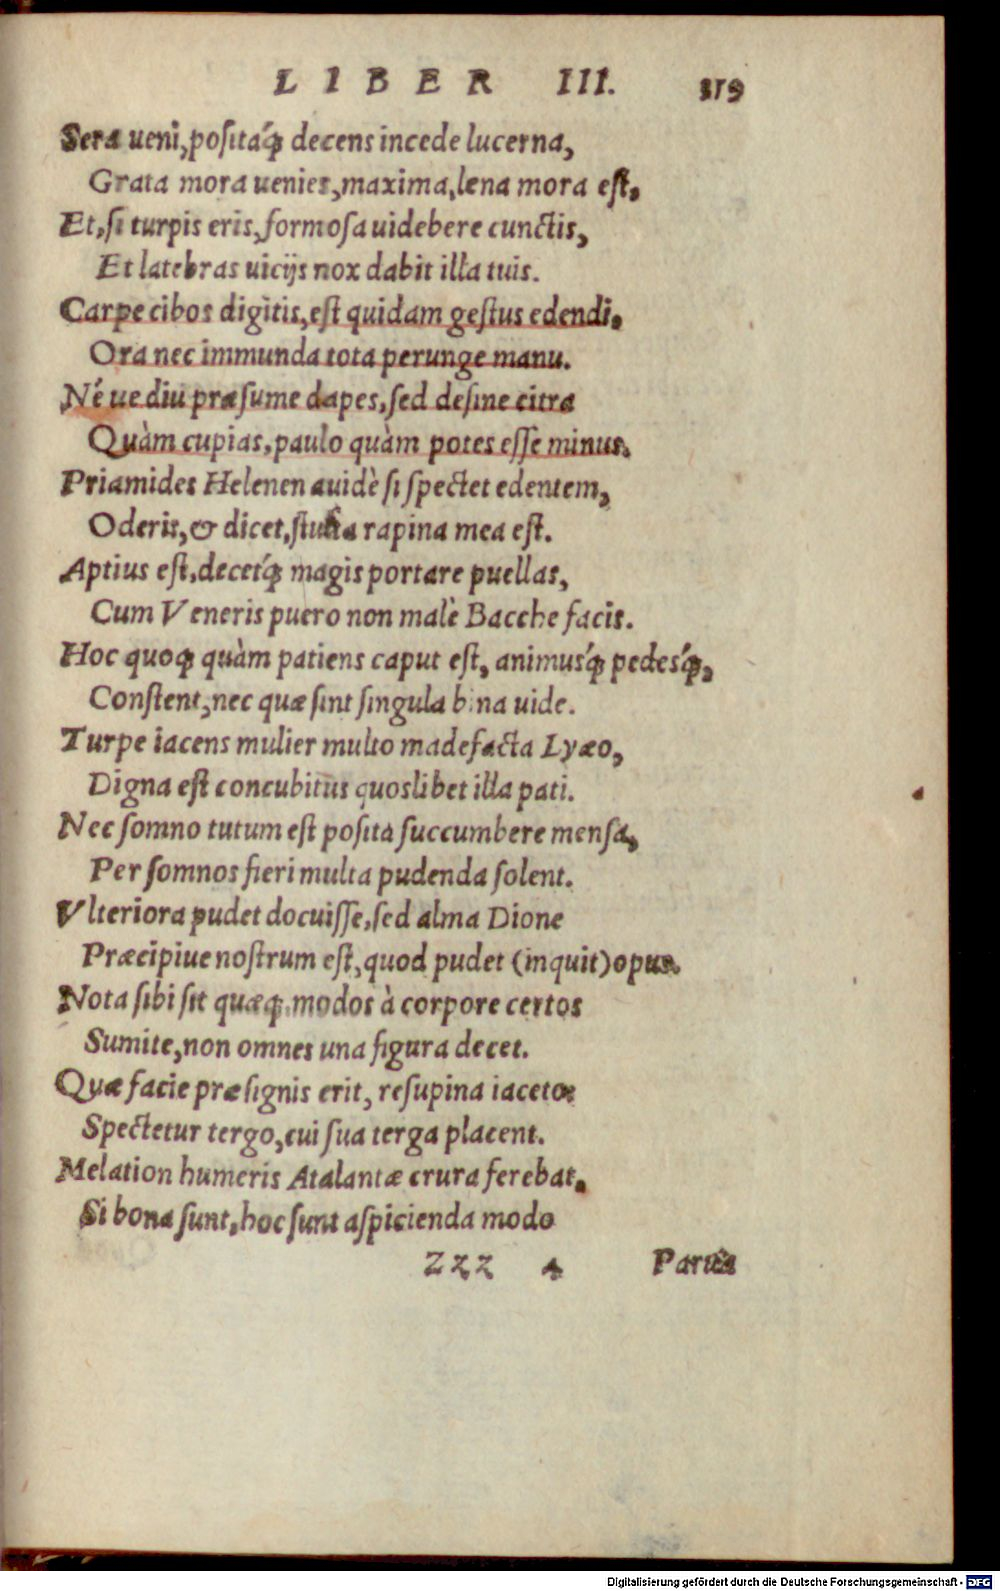 LIBER III. 319
Sera ueni, positaq́; decens incede lucerna,
Grata mora uenies, maxima, lena mora est,
Et, si turpis eris, formosa uidebere cunctis,
Et latebras uicijs nox dabit illa tuis.
Carpe cibos digitis, est quidam gestus edendi,
Ora nec immunda tota perunge manu.
Né ue diu præsume dapes, sed desine citra
Quàm cupias, paulo quàm potes esse minus.
Priamides Helenen auidè si spectet edentem,
Oderit, & dicet, stulta rapina mea est.
Aptius est, decetq́; magis portare puellas,
Cum Veneris puero non malè Bacche facis.
Hoc quoq; quàm patiens caput est, animusq́; pedesq́;,
Constent, nec quæ sint singula bina uide.
Turpe iacens mulier multo madefacta Lyæo,
Digna est concubitus quoslibet illa pati.
Nec somno tutum est posita succumbere mensa,
Per somnos fieri multa pudenda solent.
Vlteriora pudet docuisse, sed alma Dione
Præcipiue nostrum est, quod pudet (inquit) opus.
Nota sibi sit quæq; modos à corpore certos
Sumite, non omnes una figura decet.
Quæ facie præsignis erit, resupina iaceto:
Spectetur tergo, cui sua terga placent.
Melation humeris Atalantæ crura ferebat,
Si bona sunt, hoc sunt aspicienda modo
Zzz 4 Paruà
Digitalisierung gefördert durch die Deutsche Forschungsgemeinschaft - DFG